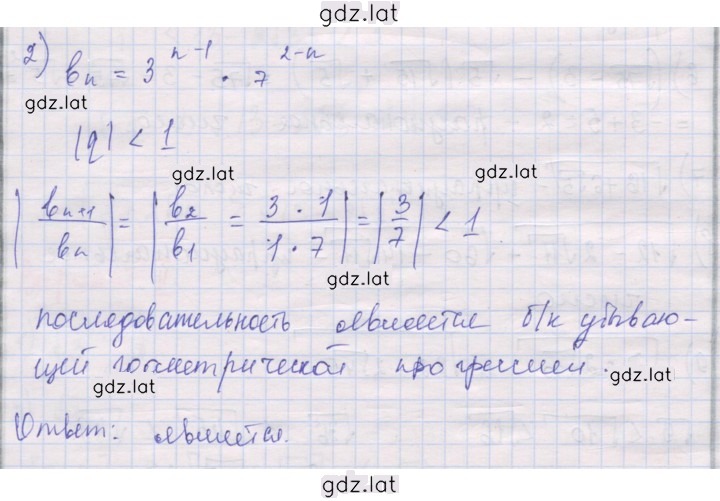 gdz.lat
2) bₙ = 3ⁿ⁻¹ · 7²⁻ⁿ
gdz.lat
|q| < 1
gdz.lat
gdz.lat
|bₙ₊₁/bₙ| = |b₂/b₁ = 3·1/1·7| = |3/7| < 1
gdz.lat
последовательность является б/к убываю-
щей геометрической прогрессией.
gdz.lat
gdz.lat
Ответ: является.
gdz.lat